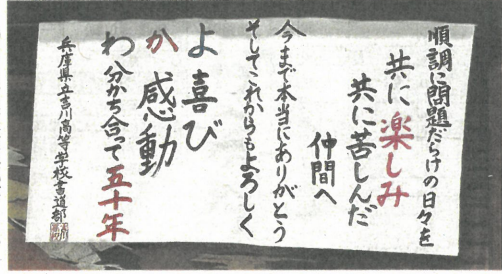 順調に問題だらけの日々を
共に楽しみ
共に苦しんだ
仲間へ
今まで本当にありがとう
そしてこれからもよろしく
よ喜び
か感動
わ分かち合って五十年
兵庫県立吉川高等学校書道部